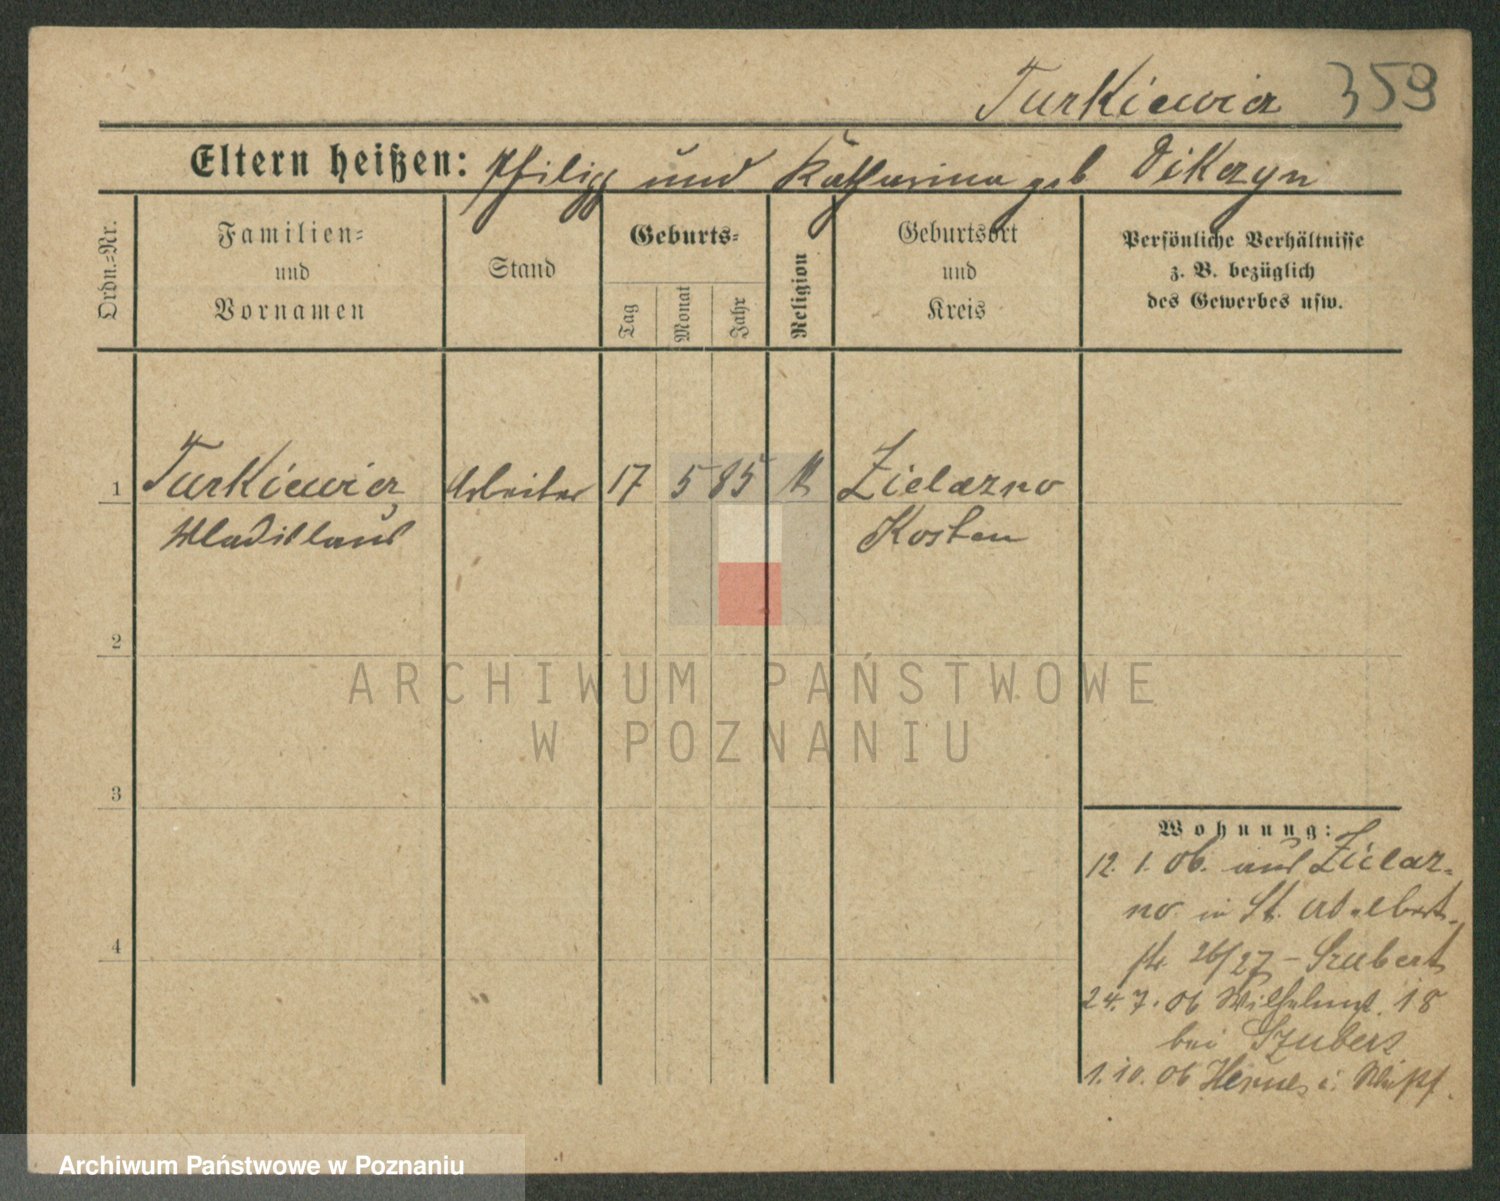 Turkiewicz 359
Eltern heißen: Philipp und Katharina geb Dikczyn
Ordn.-Nr.
Familien-
und
Vornamen
Stand
Geburts-
Tag
Monat
Jahr
Religion
Geburtsort
und
Kreis
Persönliche Verhältnisse
z. B. bezüglich
des Gewerbes usw.
1 Turkiewicz Arbeiter 17 5 85 k Zielazno
Wladislaus Kosten
2
ARCHIWUM PAŃSTWOWE
W POZNANIU
3
Wohnung:
12. 1. 06. aus Zielaz-
no in St. Adalbert-
str 26/27 - Szubert
4
24. 7. 06 Wilhelmpl. 18
bei Szubert
1. 10. 06 Herne i.
Archiwum Państwowe w Poznaniu